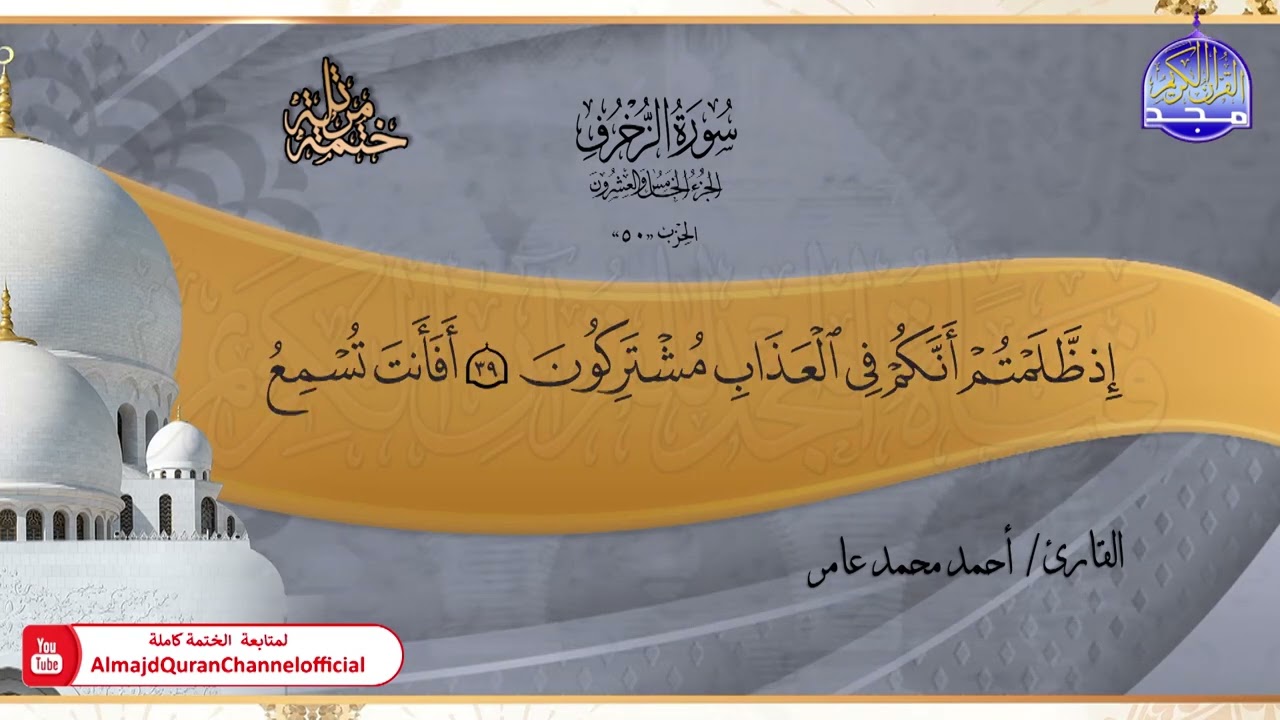 ختمة مرتلة
القرآن الكريم
مجد
سُورَةُ الزُّخْرُفِ
الجُزْءُ الخَامِسُ وَالعِشْرُونَ
الحِزْب «٥٠»
إِذ ظَّلَمْتُمْ أَنَّكُمْ فِى ٱلْعَذَابِ مُشْتَرِكُونَ ٣٩ أَفَأَنتَ تُسْمِعُ
القارئ / أحمد محمد عامر
You
Tube
لمتابعة الختمة كاملة
AlmajdQuranChannelofficial